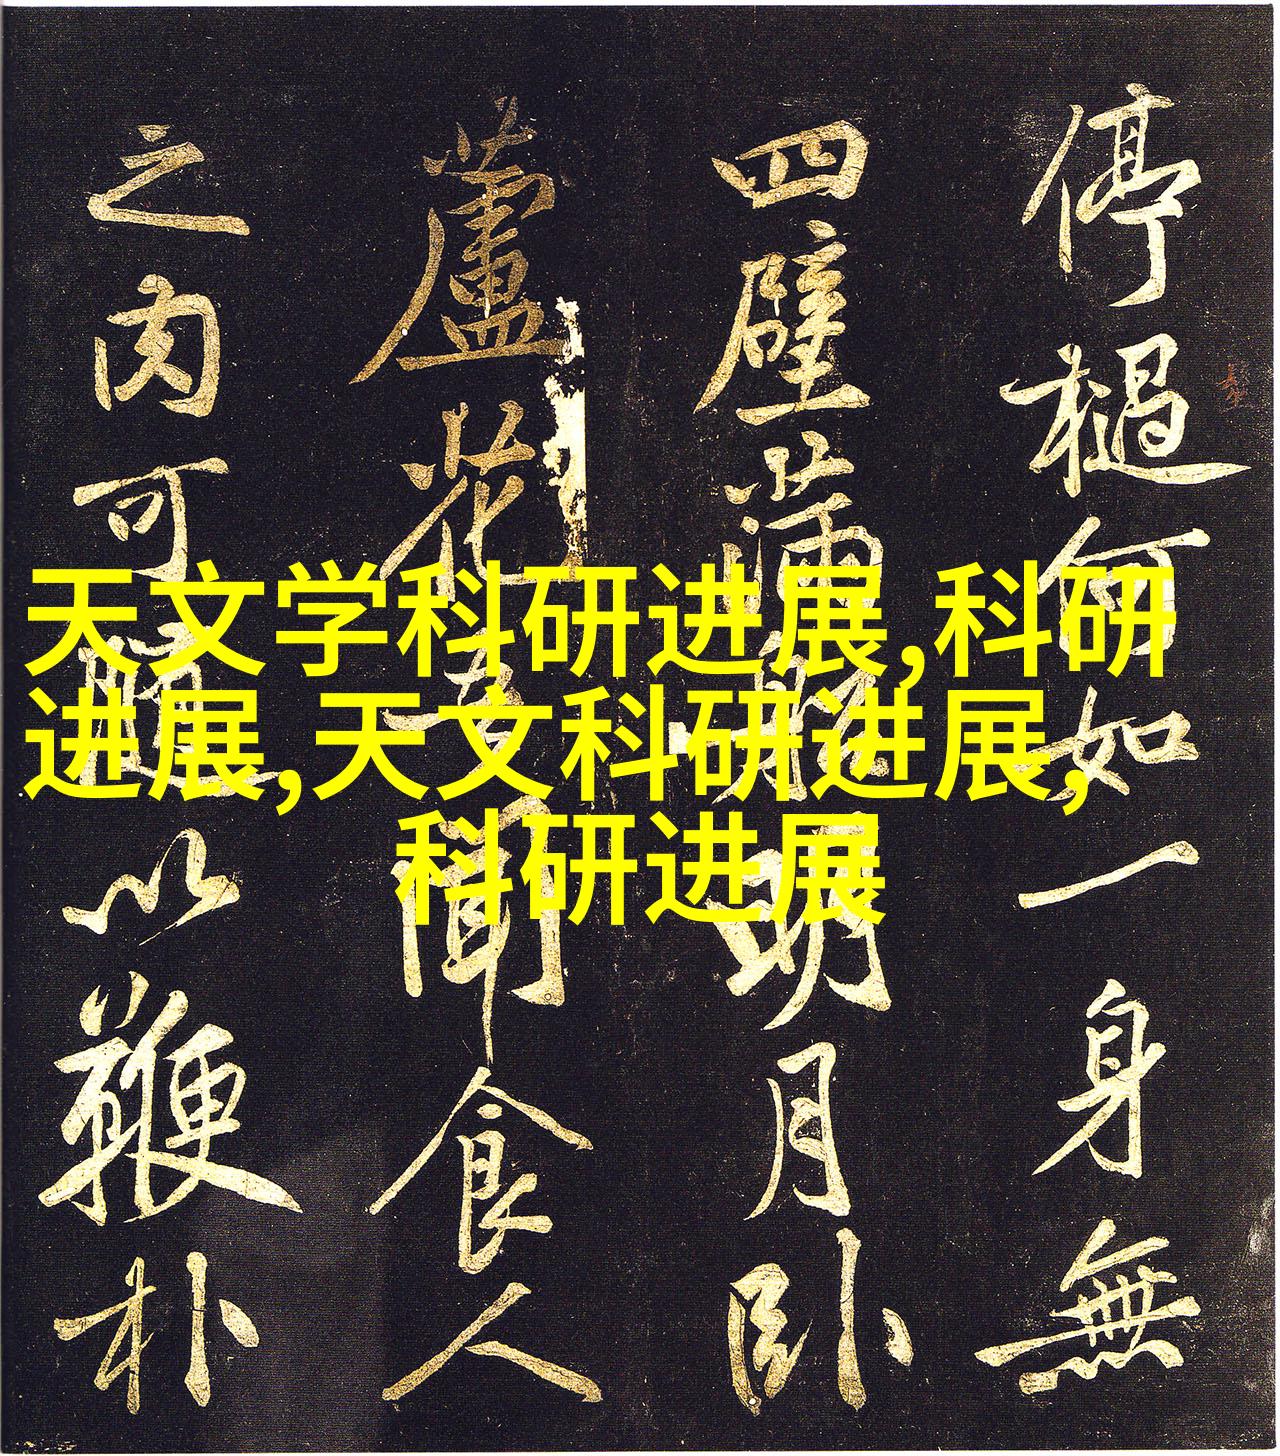 天文学科研进展,科研
进展,天文科研进展,
科研进展
停檛何如一身無
四壁滿船明月卧
蘆花吾聞食人
之肉可隨以鞭朴